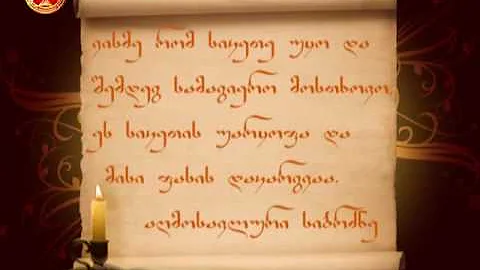 ვისმე რომ სიკეთე უყო და
შემდეგ სამაგიერო მოსთხოვო,
ეს სიკეთის უარყოფა და
მისი ფასის დაკარგვაა.
აღმოსავლური სიბრძნე